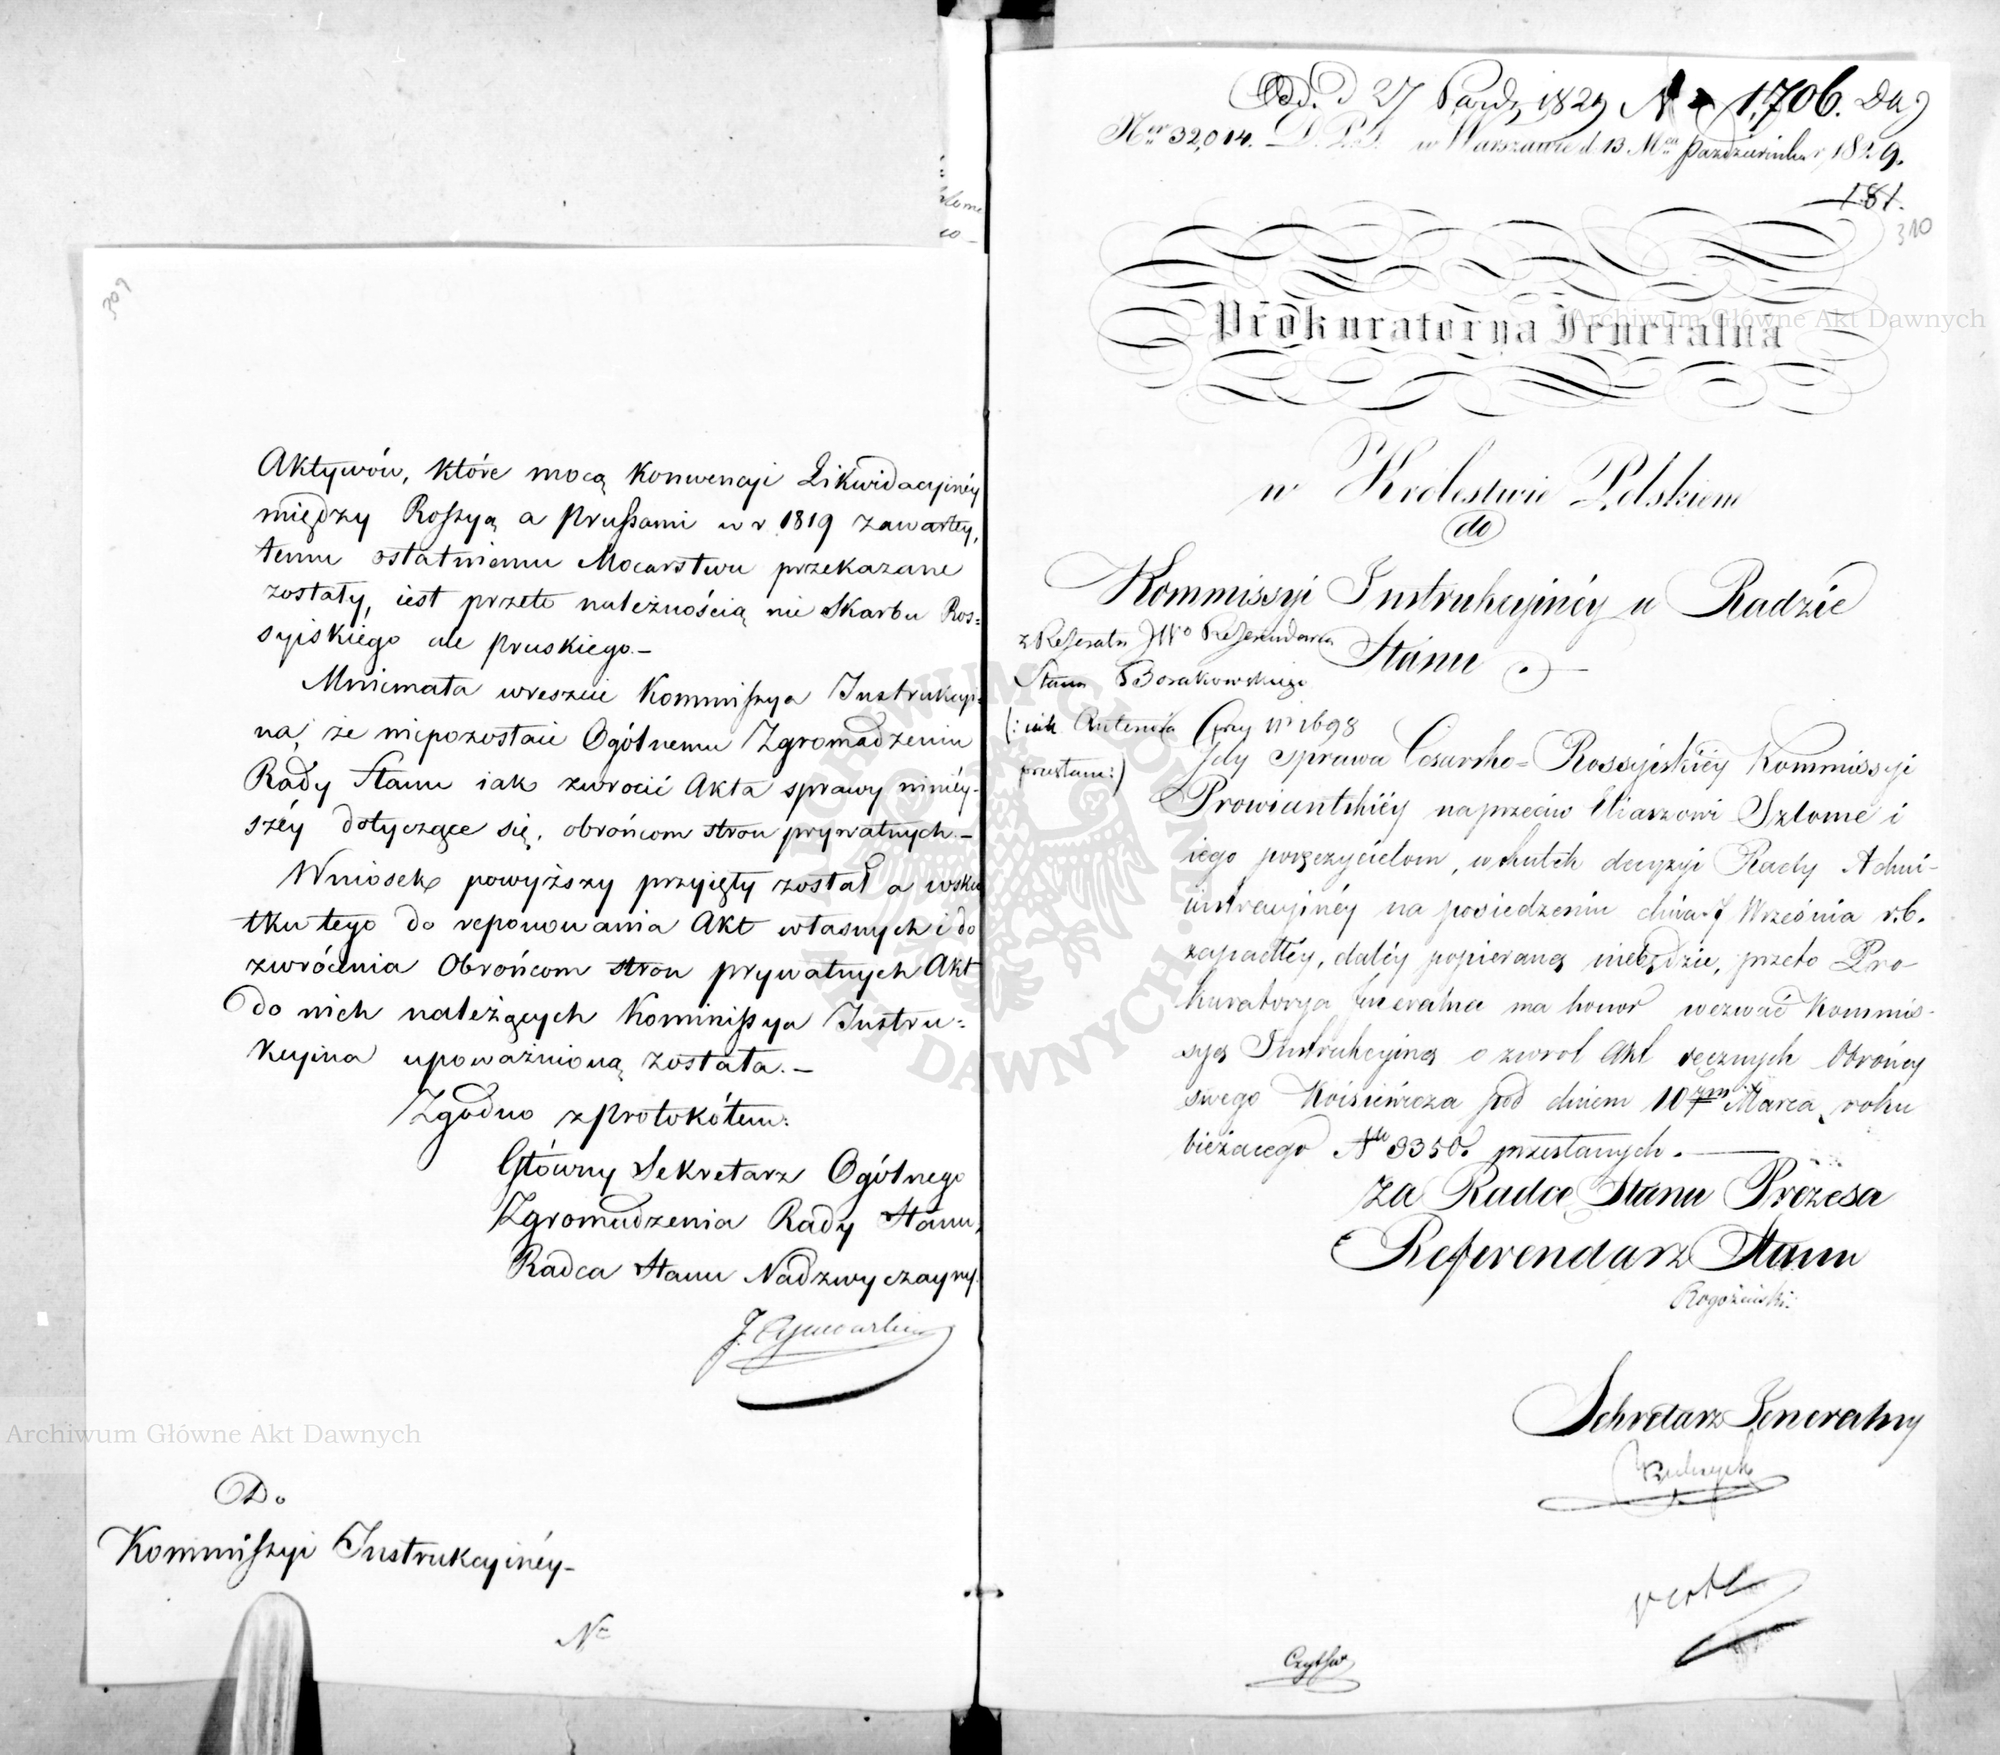 309
Aktywów, które mocą Konwencyi Likwidacyinéy
między Rossyą a Prussami w r 1819 zawartéy,
temu ostatniemu Mocarstwu przekazane
zostały, iest przeto należnością nie Skarbu Ros=
syiskiego ale Pruskiego.—
Mniemała wreszcie Kommissya Instrukcyi=
na, że niepozostaie Ogólnemu Zgromadzeniu
Rady Stanu iak zwrócić Akta sprawy niniéy-
széy dotyczące się, obrońcom stron prywatnych.—
Wniosek powyższy przyięty został a wsku
tku tego do reponowania Akt własnych i do
zwrócenia Obrońcom stron prywatnych Akt
do nich należących Kommissya Instru=
kcyina upoważnioną została.—
Zgodno z protokółem:
Główny Sekretarz Ogólnego
Zgromadzenia Rady Stanu,
Radca Stanu Nadzwyczayny.
Do
Kommissyi Instrukcyinéy-
Nr
Odd. d 27 Paźdz 1829 N 1,706.
Ner 32,014. w Warszawie d. 13 Mca Października 1829.
181.
310
Prokuratorya Jeneralna
w Królestwie Polskiem
do
Kommissyi Instrukcyinéy w Radzie
Stanu
z Referatu JWo Referendarza
Stanu Borakowskiego
(: iak Antenia Gey nr 1698
przesłane:)
Gdy sprawa Cesarsko=Rossyiskiéy Kommissyi
Prowiantskiéy naprzeciw Eliaszowi Szlome i
iego poręczycielom, w skutek decyzyi Rady Admi-
nistracyinéy na posiedzeniu dnia 7 Września r.b.
zapadłéy, daléy popieraną niebędzie, przeto Pro-
kuratorya Jeneralna ma honor wezwać Kommis-
syą Instrukcyiną o zwrot Akt ręcznych Obrońcy
swego Woisiewicza pod dniem 10 Marca roku
bieżącego No 9350. przesłanych.—
Za Radcę Stanu Prezesa
Referendarz Stanu
Rogoziński.
Sekretarz Jeneralny
Archiwum Główne Akt Dawnych
Archiwum Główne Akt Dawnych